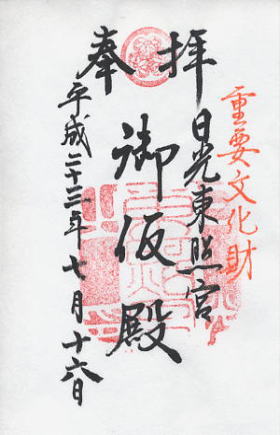 重要文化財
奉拝
日光東照宮
御仮殿
平成二十三年七月十六日